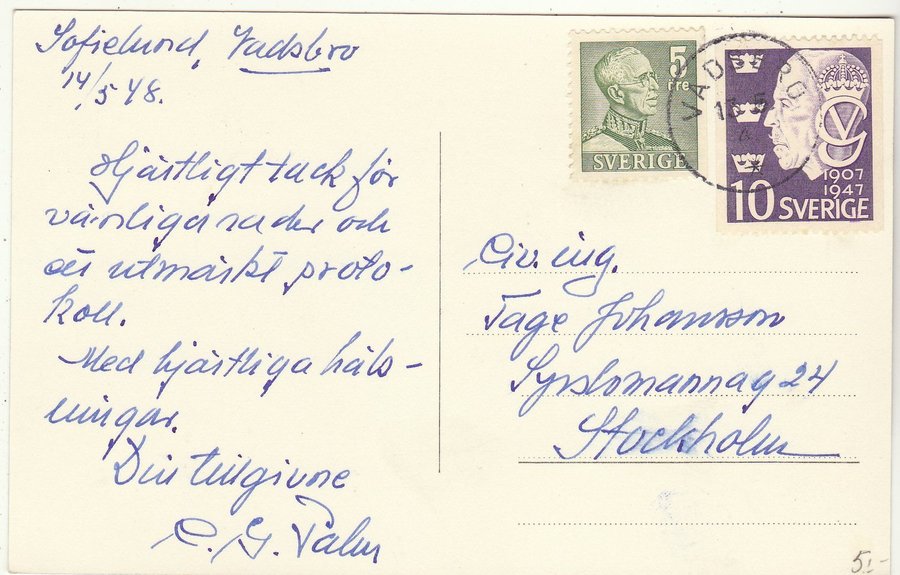 Sofielund, Vadsbro
14/5 48.
Hjärtligt tack för
vänliga rader och
ett utmärkt proto-
koll.
Med hjärtliga häls-
ningar.
Din tillgivne
C. G. Palm
5 öre
SVERIGE
VADSBRO
13 5
4
10 SVERIGE
1907
1947
Civ. ing.
Tage Johansson
Sysslomannag 24
Stockholm
5:-